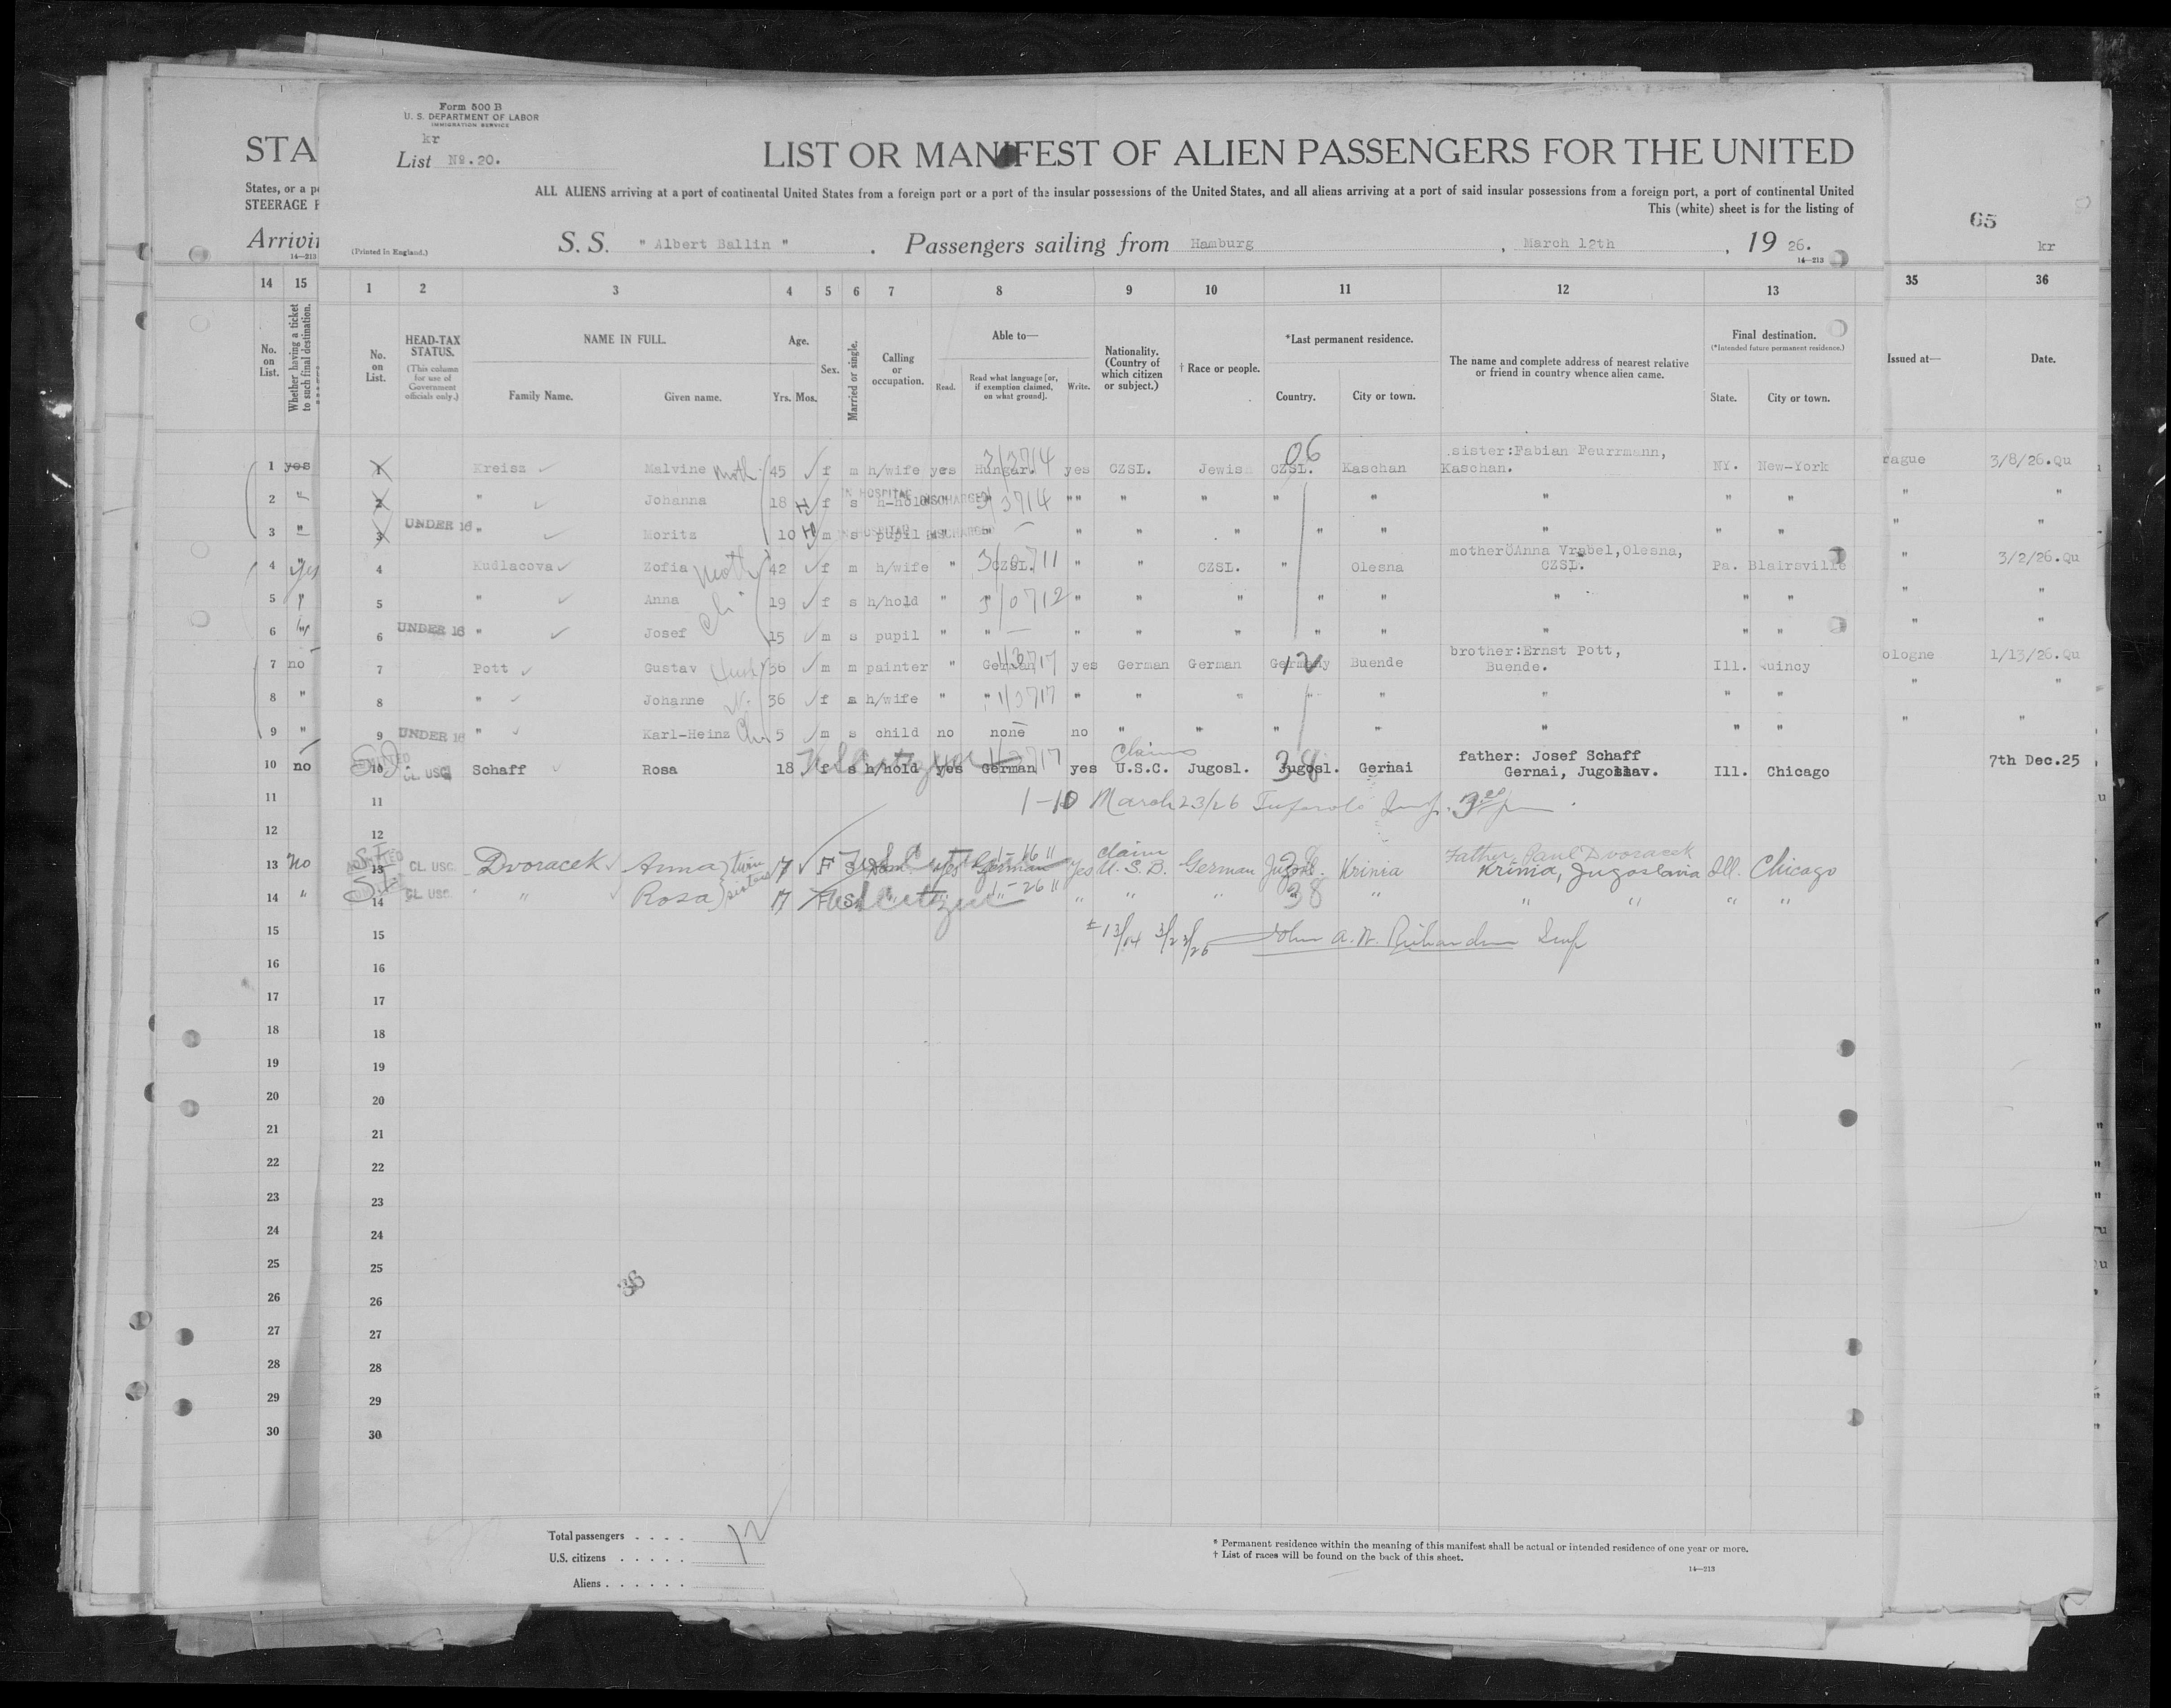 Form 500 B
U. S. DEPARTMENT OF LABOR
IMMIGRATION SERVICE
kr
List No. 20.
STA
LIST OR MANIFEST OF ALIEN PASSENGERS FOR THE UNITED
States, or a p
STEERAGE P
ALL ALIENS arriving at a port of continental United States from a foreign port or a port of the insular possessions of the United States, and all aliens arriving at a port of said insular possessions from a foreign port, a port of continental United
This (white) sheet is for the listing of
65
kr
Arrivin
14—213
(Printed in England.)
S. S. " Albert Ballin " . Passengers sailing from Hamburg , March 12th , 19 26.
14—213
14 15 1 2 3 4 5 6 7 8 9 10 11 12 13 35 36
No. on List.
Whether having a ticket to such final destination.
No. on List.
HEAD-TAX STATUS.
(This column for use of Government officials only.)
NAME IN FULL.
Family Name. Given name.
Age.
Yrs. Mos.
Sex.
Married or single.
Calling or occupation.
Able to—
Read. Read what language [or, if exemption claimed, on what ground]. Write.
Nationality. (Country of which citizen or subject.)
† Race or people.
*Last permanent residence.
Country. City or town.
The name and complete address of nearest relative or friend in country whence alien came.
Final destination.
(*Intended future permanent residence.)
State. City or town.
Issued at— Date.
1 yes 1 Kreisz Malvine moth 45 f m h/wife yes Hungar. yes CZSL. Jewis CZSL. 06 Kaschan sister:Fabian Feurrmann, Kaschan. NY. New-York rague 3/8/26.Qu
2 " 2 " Johanna 18 H f s h-hold IN HOSPITAL DISCHARGED 3/3714 " " " " " " " " " " "
3 " 3 UNDER 16 " Moritz 10 H m s pupil IN HOSPITAL DISCHARGED " — " " " " " " " " " "
4 yes 4 Kudlacova Zofia moth 42 f m h/wife " CZSL. " " CZSL. " Olesna mother Anna Vrabel, Olesna, CZSL. Pa. Blairsville " 3/2/26.Qu
5 " 5 " Anna ch 19 f s h/hold " " 3/0712 " " " " " " " " " "
6 " 6 UNDER 16 " Josef 15 m s pupil " " — " " " " " " " " " "
7 no 7 Pott Gustav Husb 36 m m painter " German yes German German Germany 12 Buende brother:Ernst Pott, Buende. Ill. Quincy ologne 1/13/26.Qu
8 " 8 " Johanne W. 36 f m h/wife " " 1/3717 " " " " " " " " " "
9 " 9 UNDER 16 " Karl-Heinz Ch 5 m s child no none no " " " " " " " " "
10 no 10 ADMITTED CL. USC Schaff Rosa 18 f s h/hold yes German yes claims U.S.C. Jugosl. Jugosl. 38 Gernai father: Josef Schaff Gernai, Jugoslav. Ill. Chicago 7th Dec.25
11 11 1-10 March 23/26 Insp. 3 20 pm
12 12
13 No 13 S.I. ADMITTED CL. USC. Dvoracek Anna } twin 17 F S yes German Yes claim U.S.B. German Jugosl. 38 Krinia Father Paul Dvoracek Krinia, Jugoslavia Ill. Chicago
14 " 14 S.I. CL. USC. " Rosa } sisters 17 F S " " " " " 38 " " " " "
15 15 13/14 3/23/26 John A. W. Richardson Insp
16 16
17 17
18 18
19 19
20 20
21 21
22 22
23 23
24 24
25 25
36
26 26
27 27
28 28
29 29
30 30
Total passengers . . . . 12
U.S. citizens . . . . .
Aliens . . . . . .
* Permanent residence within the meaning of this manifest shall be actual or intended residence of one year or more.
† List of races will be found on the back of this sheet.
14—213